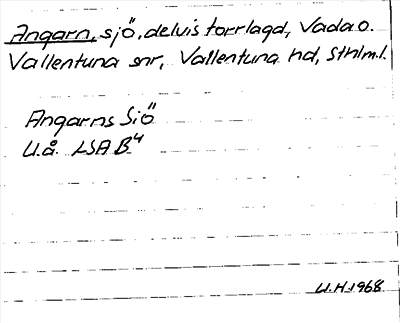 Angarn, sjö, delvis torrlagd, Vada o.
Vallentuna snr, Vallentuna hd, Sthlm.l.
Angarns Sjö
U.å. LSA B4
U.H.1968